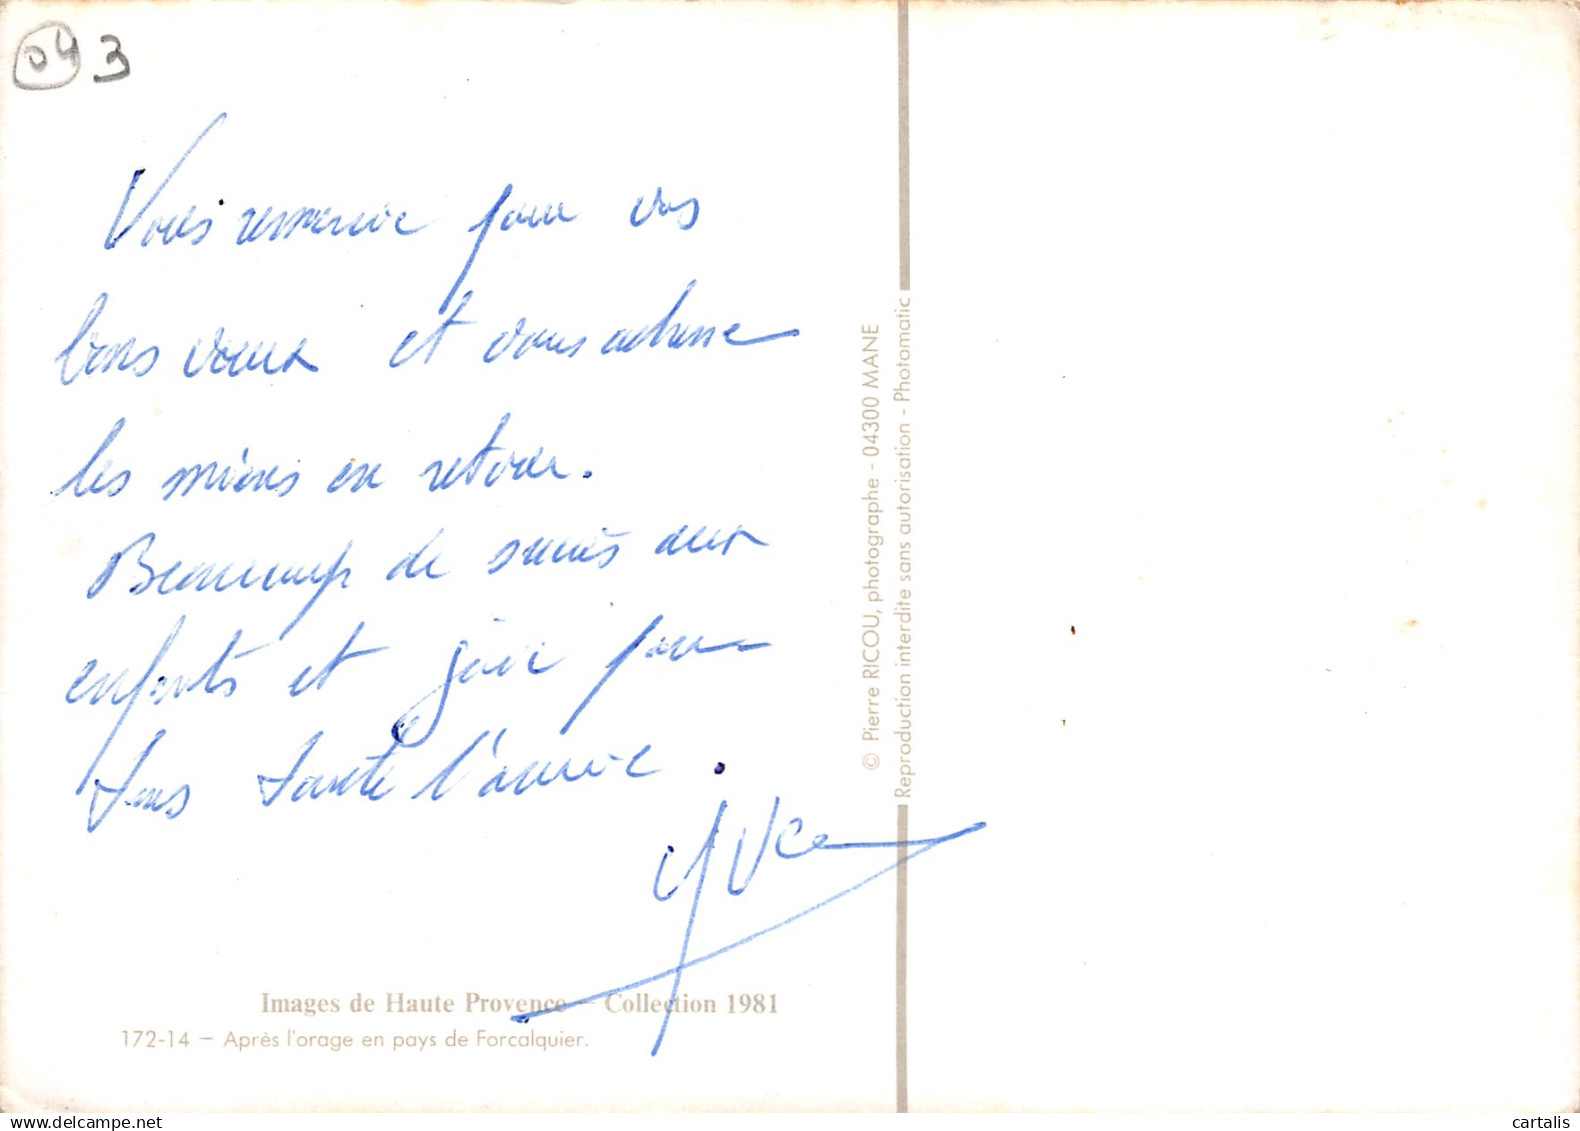 04 3
Vous remercie pour vos
bons voeux et vous adresse
les miens en retour.
Beaucoup de succès aux
enfants et joie pour
tous toute l'année.
Yve
Images de Haute Provence – Collection 1981
172-14 – Après l'orage en pays de Forcalquier.
© Pierre RICOU, photographe - 04300 MANE
Reproduction interdite sans autorisation - Photomatic
delcampe.net
cartalis